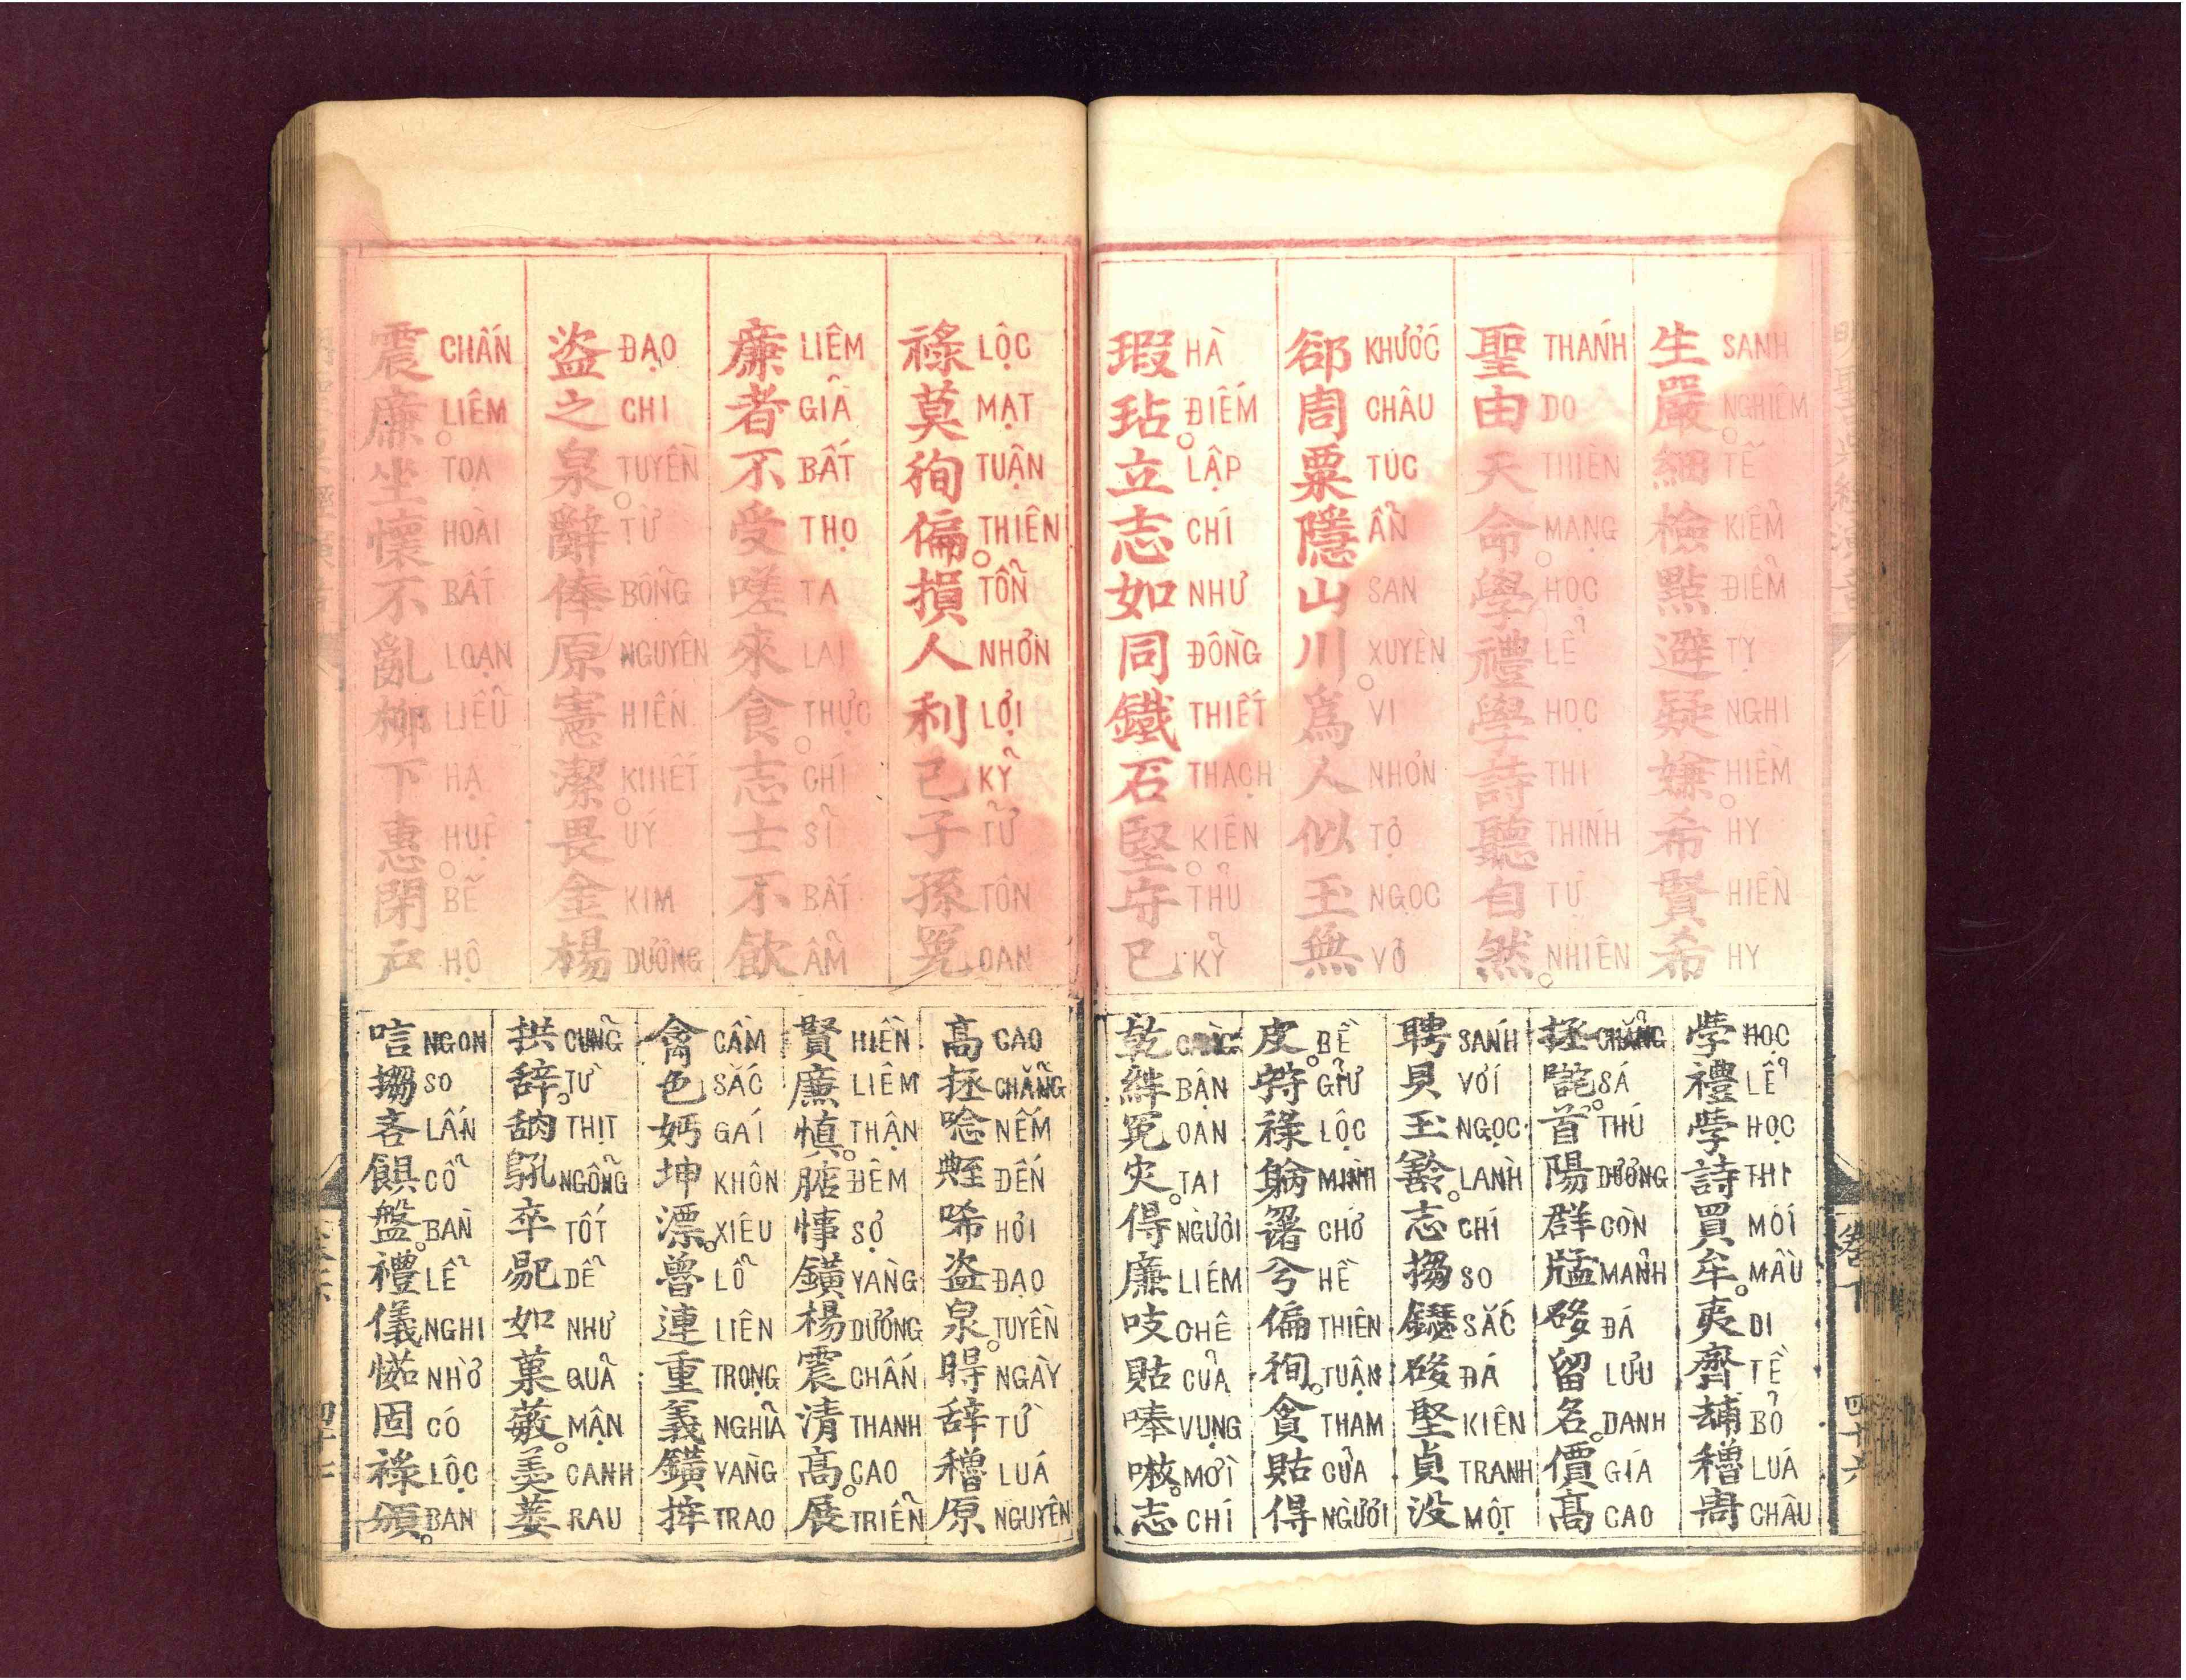 生嚴細檢點避疑嫌希賢希
SANH NGHIÊM TẾ KIỂM ĐIỂM TỴ NGHI HIỀM HY HIỀN HY
聖由天命學禮學詩聽自然
THÁNH DO THIÊN MẠNG HỌC LỄ HỌC THI THÍNH TỰ NHIÊN
郤周粟隱山川爲人似玉無
KHƯỚC CHÂU TÚC ẨN SAN XUYÊN VI NHƠN TỢ NGỌC VÔ
瑕玷立志如同鐵石堅守已
HÀ ĐIẾM LẬP CHÍ NHƯ ĐỒNG THIẾT THẠCH KIÊN THỦ KỶ
斈禮斈詩買牟夷齊䊇穭周
HỌC LỄ HỌC THI MỚI MẦU DI TỀ BỎ LUÁ CHÂU
拯首陽群猛留名價高
CHẲNG SÁ THÚ DƯƠNG CÒN MẢNH ĐÁ LƯU DANH GIÁ CAO
聘貝玉志堅貞没
SÁNH VỚI NGỌC LÀNH CHÍ SO SẮC ĐÁ KIÊN TRANH MỘT
皮祿兮偏徇貪貼得
BỀ GIỮ LỘC MÌNH CHỚ HỀ THIÊN TUẬN THAM CỦA NGƯỜI
乾絆冤灾得廉吱貼唪志
BẬN OAN TAI NGƯỜI LIÊM CHÊ CỦA VỤNG MỜI CHÍ
卷下
四十六
祿莫徇偏損人利己子孫冤
LỘC MẠT TUẬN THIÊN TỔN NHƠN LỢI KỶ TỬ TÔN OAN
廉者不受嗟來食志士不飲
LIÊM GIẢ BẤT THỌ TA LAI THỰC CHÍ SĨ BẤT ẨM
盜之泉辭俸原憲潔畏金楊
ĐẠO CHI TUYỀN TỪ BỔNG NGUYÊN HIẾN KHIẾT ÚY KIM DƯƠNG
震廉坐懷不亂柳下惠閉户
CHẤN LIÊM TỌA HOÀI BẤT LOẠN LIỄU HẠ HUỆ BẾ HỘ
高拯唸唏盜泉辞穭原
CAO CHẲNG NẾM ĐẾN HỎI ĐẠO TUYỀN NGÀY TỪ LUÁ NGUYÊN
賢廉慎鐄楊震清高展
HIỀN LIÊM THẬN ĐÊM SỢ VÀNG DƯƠNG CHẤN THANH CAO TRIỂN
禽色坤漂魯連重義鐄挥
CẦM SẮC GÁI KHÔN XIÊU LỖ LIÊN TRỌNG NGHĨA VÀNG TRAO
拱辞卒如菓羹蔞
CŨNG TỪ THỊT NGỖNG TỐT DỂ NHƯ QUẢ MẬN CANH RAU
唁吝盤禮儀固祿頒
NGON SO LẤN CỖ BÀN LỄ NGHI NHỜ CÓ LỘC BAN